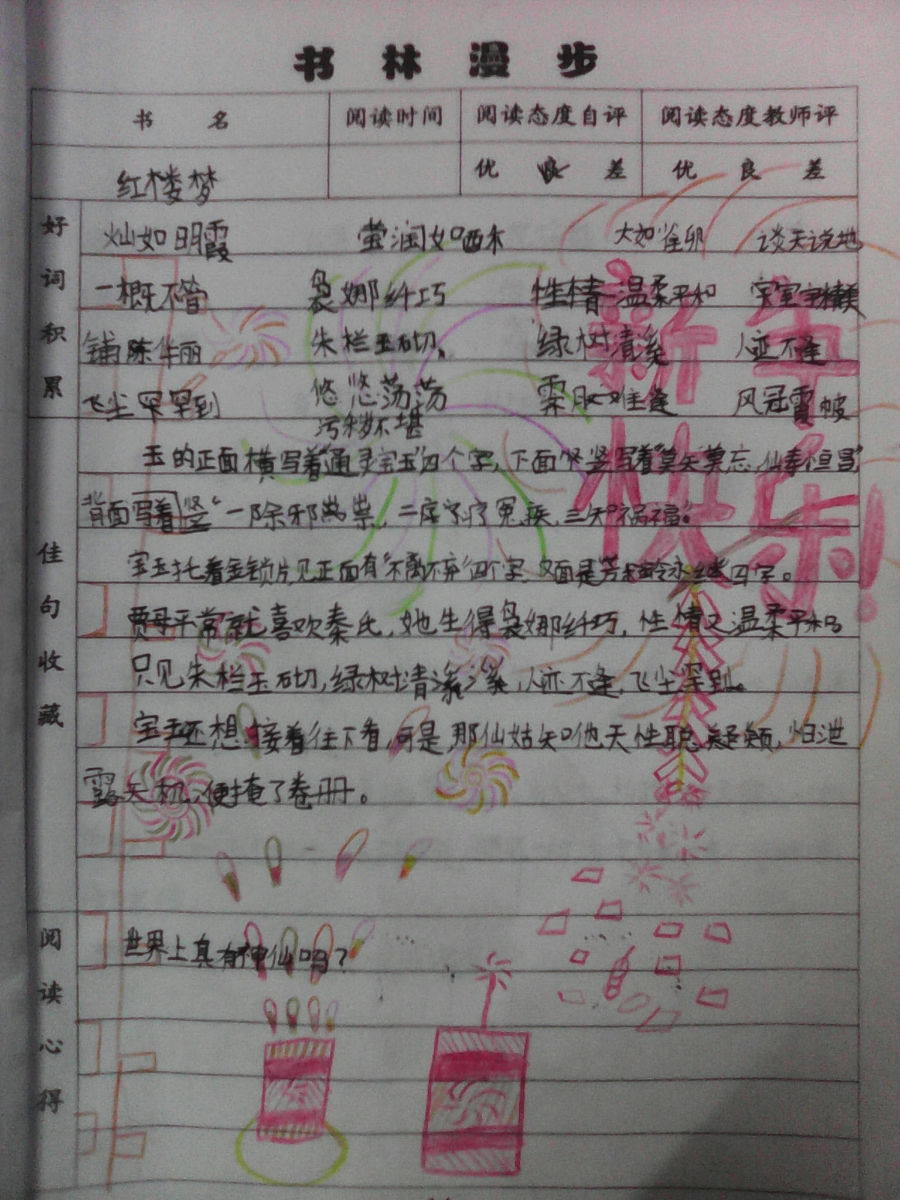 书林漫步
书 名 阅读时间 阅读态度自评 阅读态度教师评
红楼梦 优 良 差 优 良 差
好词积累
灿如明霞 莹润如酥 大如雀卵 谈天说地
一概不管 袅娜纤巧 性情温柔平和
铺陈华丽 朱栏玉砌 绿树清溪 人迹不逢
飞尘罕到 悠悠荡荡
污秽不堪
佳句收藏
玉的正面横写着"通灵宝玉"四个字,下面竖写着"莫失莫忘,仙寿恒昌"
背面写着竖"一除邪祟,二疗冤疾,三知祸福"。
宝玉托着金锁片见正面有"不离不弃"四个字,反面是芳龄永继四字。
贾母平常就喜欢秦氏,她生得袅娜纤巧,性情又温柔平和
只见朱栏玉砌,绿树清溪,人迹不逢,飞尘罕到。
宝玉还想接着往下看,可是,那仙姑知他天性聪颖,怕泄
露天机,便掩了卷册。
阅读心得
世界上真有神仙吗?
新年
快乐!